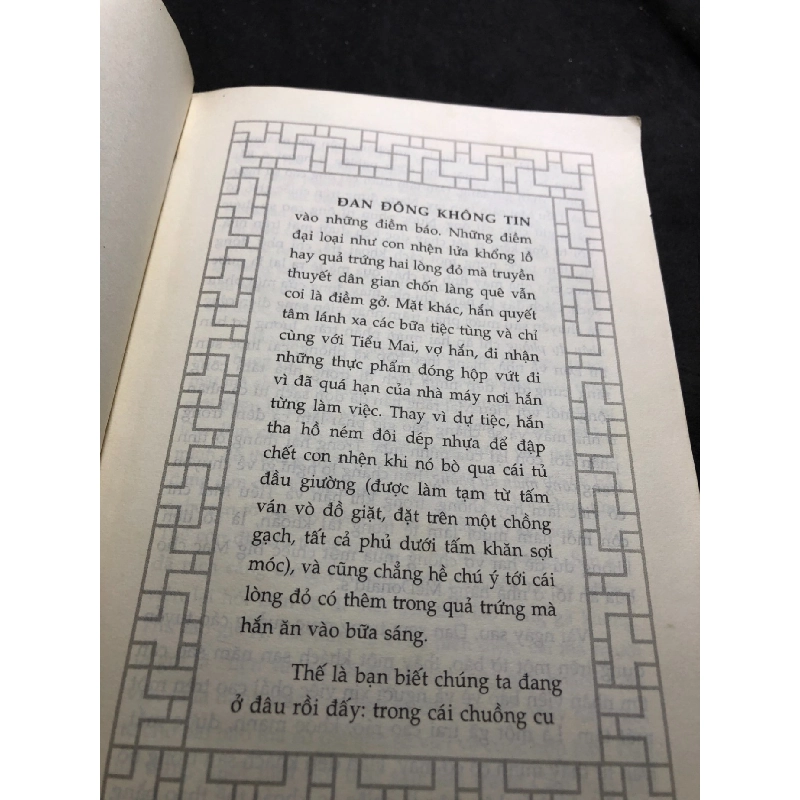 ĐAN ĐÔNG KHÔNG TIN
vào những điềm báo. Những điềm
đại loại như con nhện lửa khổng lồ
hay quả trứng hai lòng đỏ mà truyền
thuyết dân gian chốn làng quê vẫn
coi là điềm gở. Mặt khác, hắn quyết
tâm lánh xa các bữa tiệc tùng và chỉ
cùng với Tiểu Mai, vợ hắn, đi nhận
những thực phẩm đóng hộp vứt đi
vì đã quá hạn của nhà máy nơi hắn
từng làm việc. Thay vì dự tiệc, hắn
tha hồ ném đôi dép nhựa để đập
chết con nhện khi nó bò qua cái tủ
đầu giường (được làm tạm từ tấm
ván vò đồ giặt, đặt trên một chồng
gạch, tất cả phủ dưới tấm khăn sợi
móc), và cũng chẳng hề chú ý tới cái
lòng đỏ có thêm trong quả trứng mà
hắn ăn vào bữa sáng.
Thế là bạn biết chúng ta đang
ở đâu rồi đấy: trong cái chuồng cu